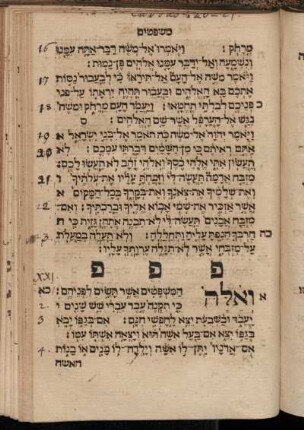 משפטים
16 מרחק: ויאמרו אל־משה דבר־אתה עמנו
ונשמעה ואל־ידבר עמנו אלהים פן־נמות:
17 ויאמר משה אל־העם אל־תיראו כי לבעבור נסות
אתכם בא האלהים ובעבור תהיה יראתו על־פני
כ פניכם לבלתי תחטאו: ויעמד העם מרחק ומשה
נגש אל־הערפל אשר שם האלהים: ס
19 ויאמר יהוה אל־משה כה תאמר אל־בני ישראל
20 אתם ראיתם כי מן־השמים דברתי עמכם: לא
תעשון אתי אלהי כסף ואלהי זהב לא תעשו לכם:
21 מזבח אדמה תעשה־לי וזבחת עליו את־עלתיך
ואת־שלמיך את־צאנך ואת־בקרך בכל־המקום
אשר אזכיר את־שמי אבוא אליך וברכתיך: ואם
מזבח אבנים תעשה־לי לא־תבנה אתהן גזית כי
כה חרבך הנפת עליה ותחללה: ולא־תעלה במעלת
על־מזבחי אשר לא־תגלה ערותך עליו:
פ פ פ
XXI
א ואלה המשפטים אשר תשים לפניהם: כא
כי תקנה עבד עברי שש שנים 2
3 יעבד ובשבעת יצא לחפשי חנם: אם־בגפו יבא
בגפו יצא אם־בעל אשה הוא ויצאה אשתו עמו:
4 אם־אדניו יתן־לו אשה וילדה־לו בנים או בנות
האשה